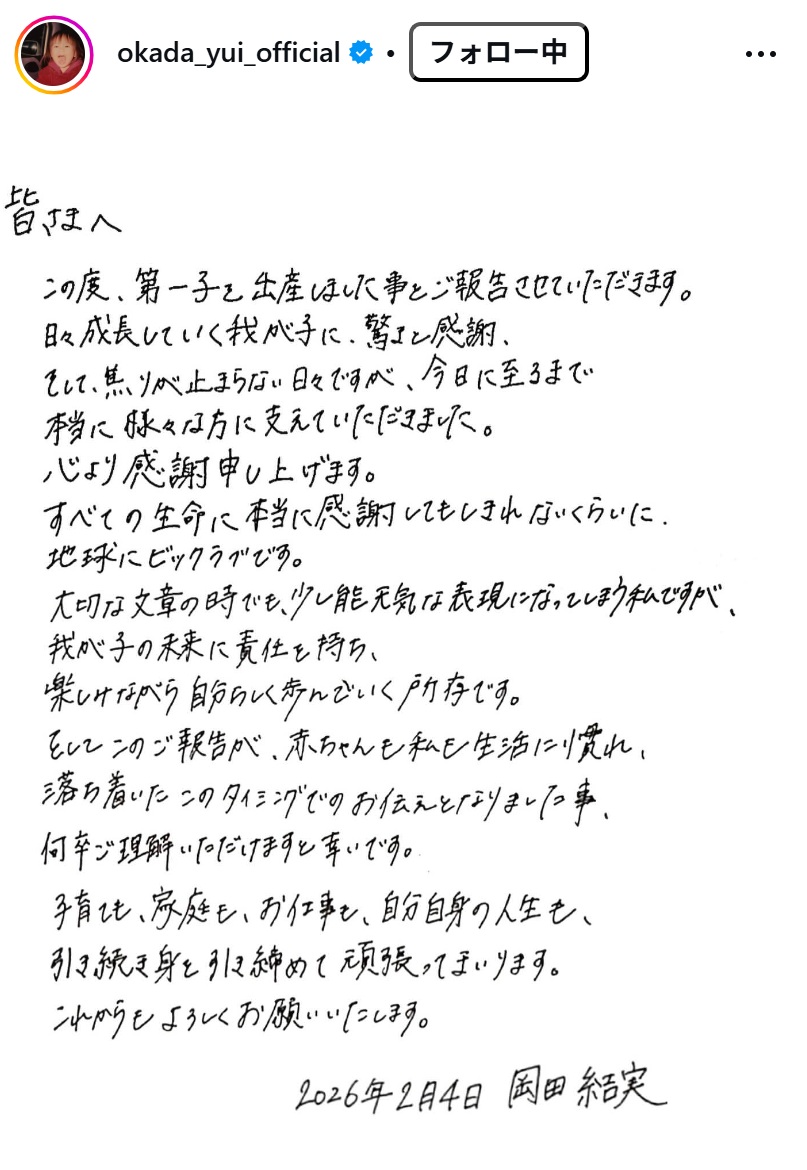 okada_yui_official • フォロー中 •••
皆さまへ
この度、第一子を出産しました事をご報告させていただきます。
日々成長していく我が子に、驚きと感謝、
そして、焦りが止まらない日々ですが、今日に至るまで
本当に様々な方に支えていただきました。
心より感謝申し上げます。
すべての生命に本当に感謝してもしきれないくらいに、
地球にビックラブです。
大切な文章の時でも、少し能天気な表現になってしまう私ですが、
我が子の未来に責任を持ち、
楽しみながら自分らしく歩んでいく所存です。
そしてこのご報告が、赤ちゃんも私も生活に慣れ、
落ち着いたこのタイミングでのお伝えとなりました事、
何卒ご理解いただけますと幸いです。
子育ても、家庭も、お仕事も、自分自身の人生も、
引き続き身を引き締めて頑張ってまいります。
これからもよろしくお願いいたします。
2026年2月4日 岡田結実